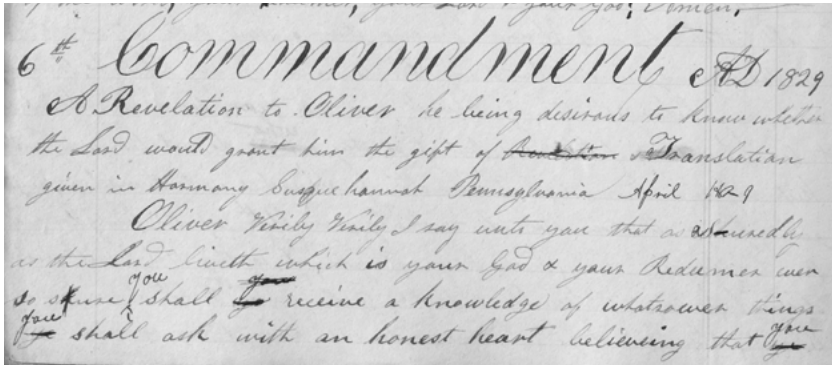 your Lord & your God, Amen,
6th Commandment AD 1829
A Revelation to Oliver he being desirous to know whether
the Lord would grant him the gift of Revelation Translation
given in Harmony Susquehannah Pennsylvania April 1829
Oliver Verily Verily I say unto you that as assuredly
as the Lord liveth which is your God & your Redeemer even
so sure you shall ye you receive a knowledge of whatsoever things
ye you shall ask with an honest heart believeing that ye you